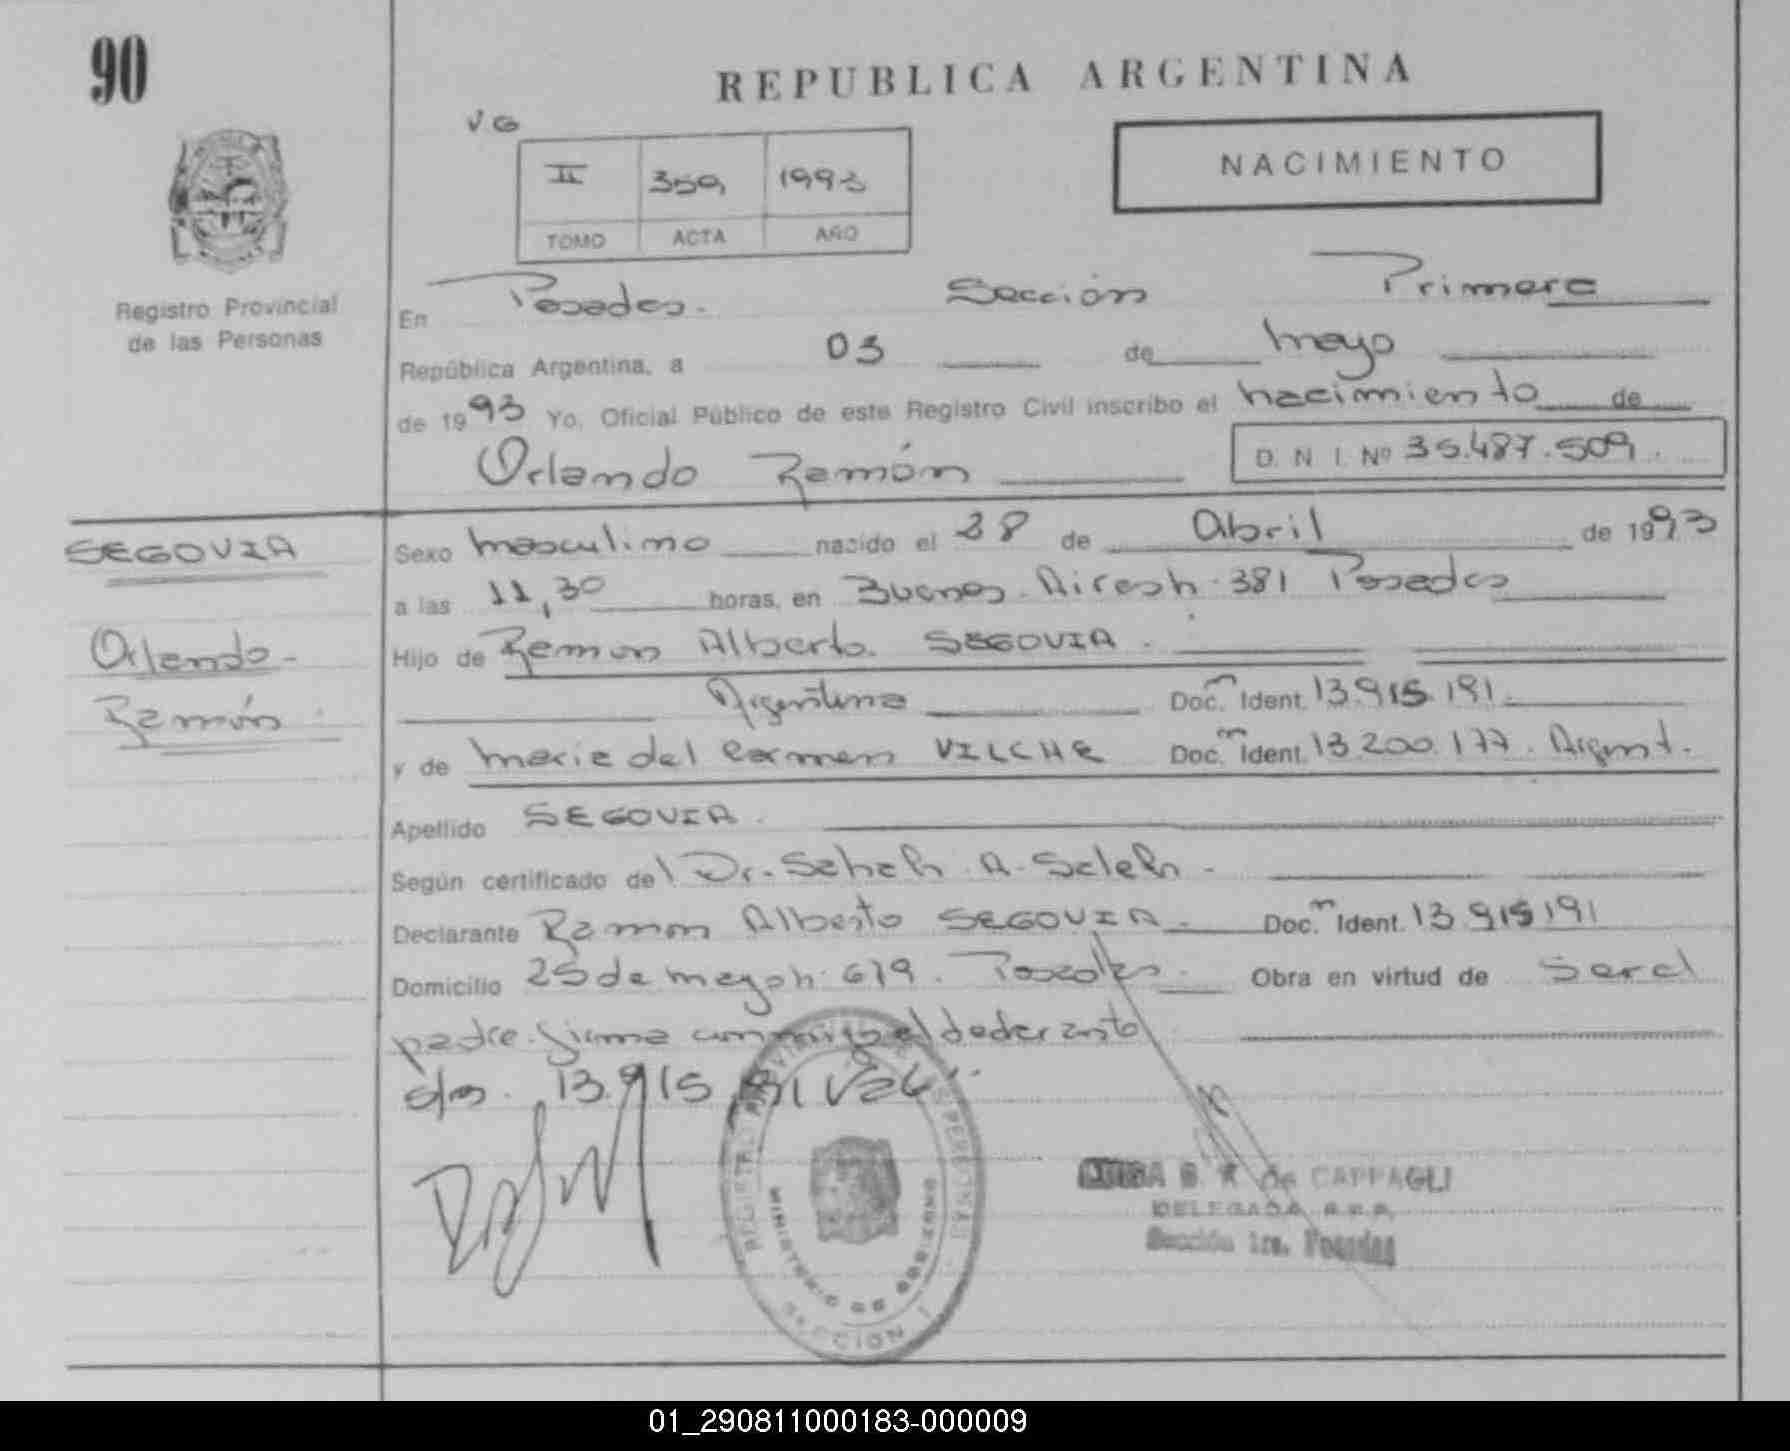 90
REPUBLICA ARGENTINA
VG
II 359 1993
TOMO ACTA AÑO
NACIMIENTO
Registro Provincial
de las Personas
En Posadas. Sección Primera
República Argentina, a 03 de mayo
de 1993 Yo, Oficial Público de este Registro Civil inscribo el nacimiento de
Orlando Ramón D. N. I. Nº 35.487.509.
SEGOVIA
Orlando
Ramón
Sexo masculino nacido el 28 de Abril de 1993
a las 11,30 horas, en Buenos Aires h. 381 Posadas
Hijo de Ramon Alberto SEGOVIA.
Argentina Doc. m Ident. 13.915.191.
y de Maria del Carmen VILCHE Doc. m Ident. 13.200.177. Argent.
Apellido SEGOVIA.
Según certificado del Dr. Saheh A. Saleh.
Declarante Ramon Alberto SEGOVIA. Doc. m Ident. 13.915191
Domicilio 25 de mayo h. 679. Posadas. Obra en virtud de Ser el
padre. firma conmigo el declarante
s/r. 13.915.191 Vale..
REGISTRO PROVINCIAL DE LAS PERSONAS
MINISTERIO DE GOBIERNO
SECCION 1
LUISA B. R. de CAPPAGLI
DELEGADA R.P.P.
Sección 1ra. Posadas
01_290811000183-000009